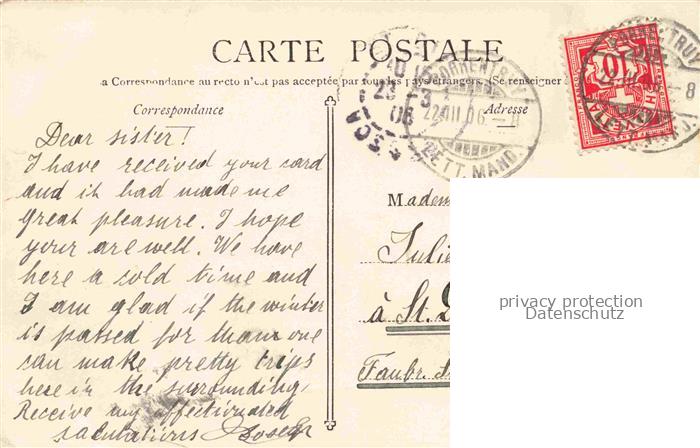 CARTE POSTALE
a Correspondance au recto n'est pas acceptée par tous les pays étrangers. (Se renseigner à
Correspondance
Adresse
Dear sister!
I have received your card
and it had made me
great pleasure. I hope
your are well. We have
here a cold time and
I am glad if the winter
is passed for tham one
can make pretty trips
here in the surrounding
Receive my affectionated
salutations Joseph
Madem
Julie
à St.
Faubr. St
10
22 III 06
LETT. MAND.
privacy protection
Datenschutz